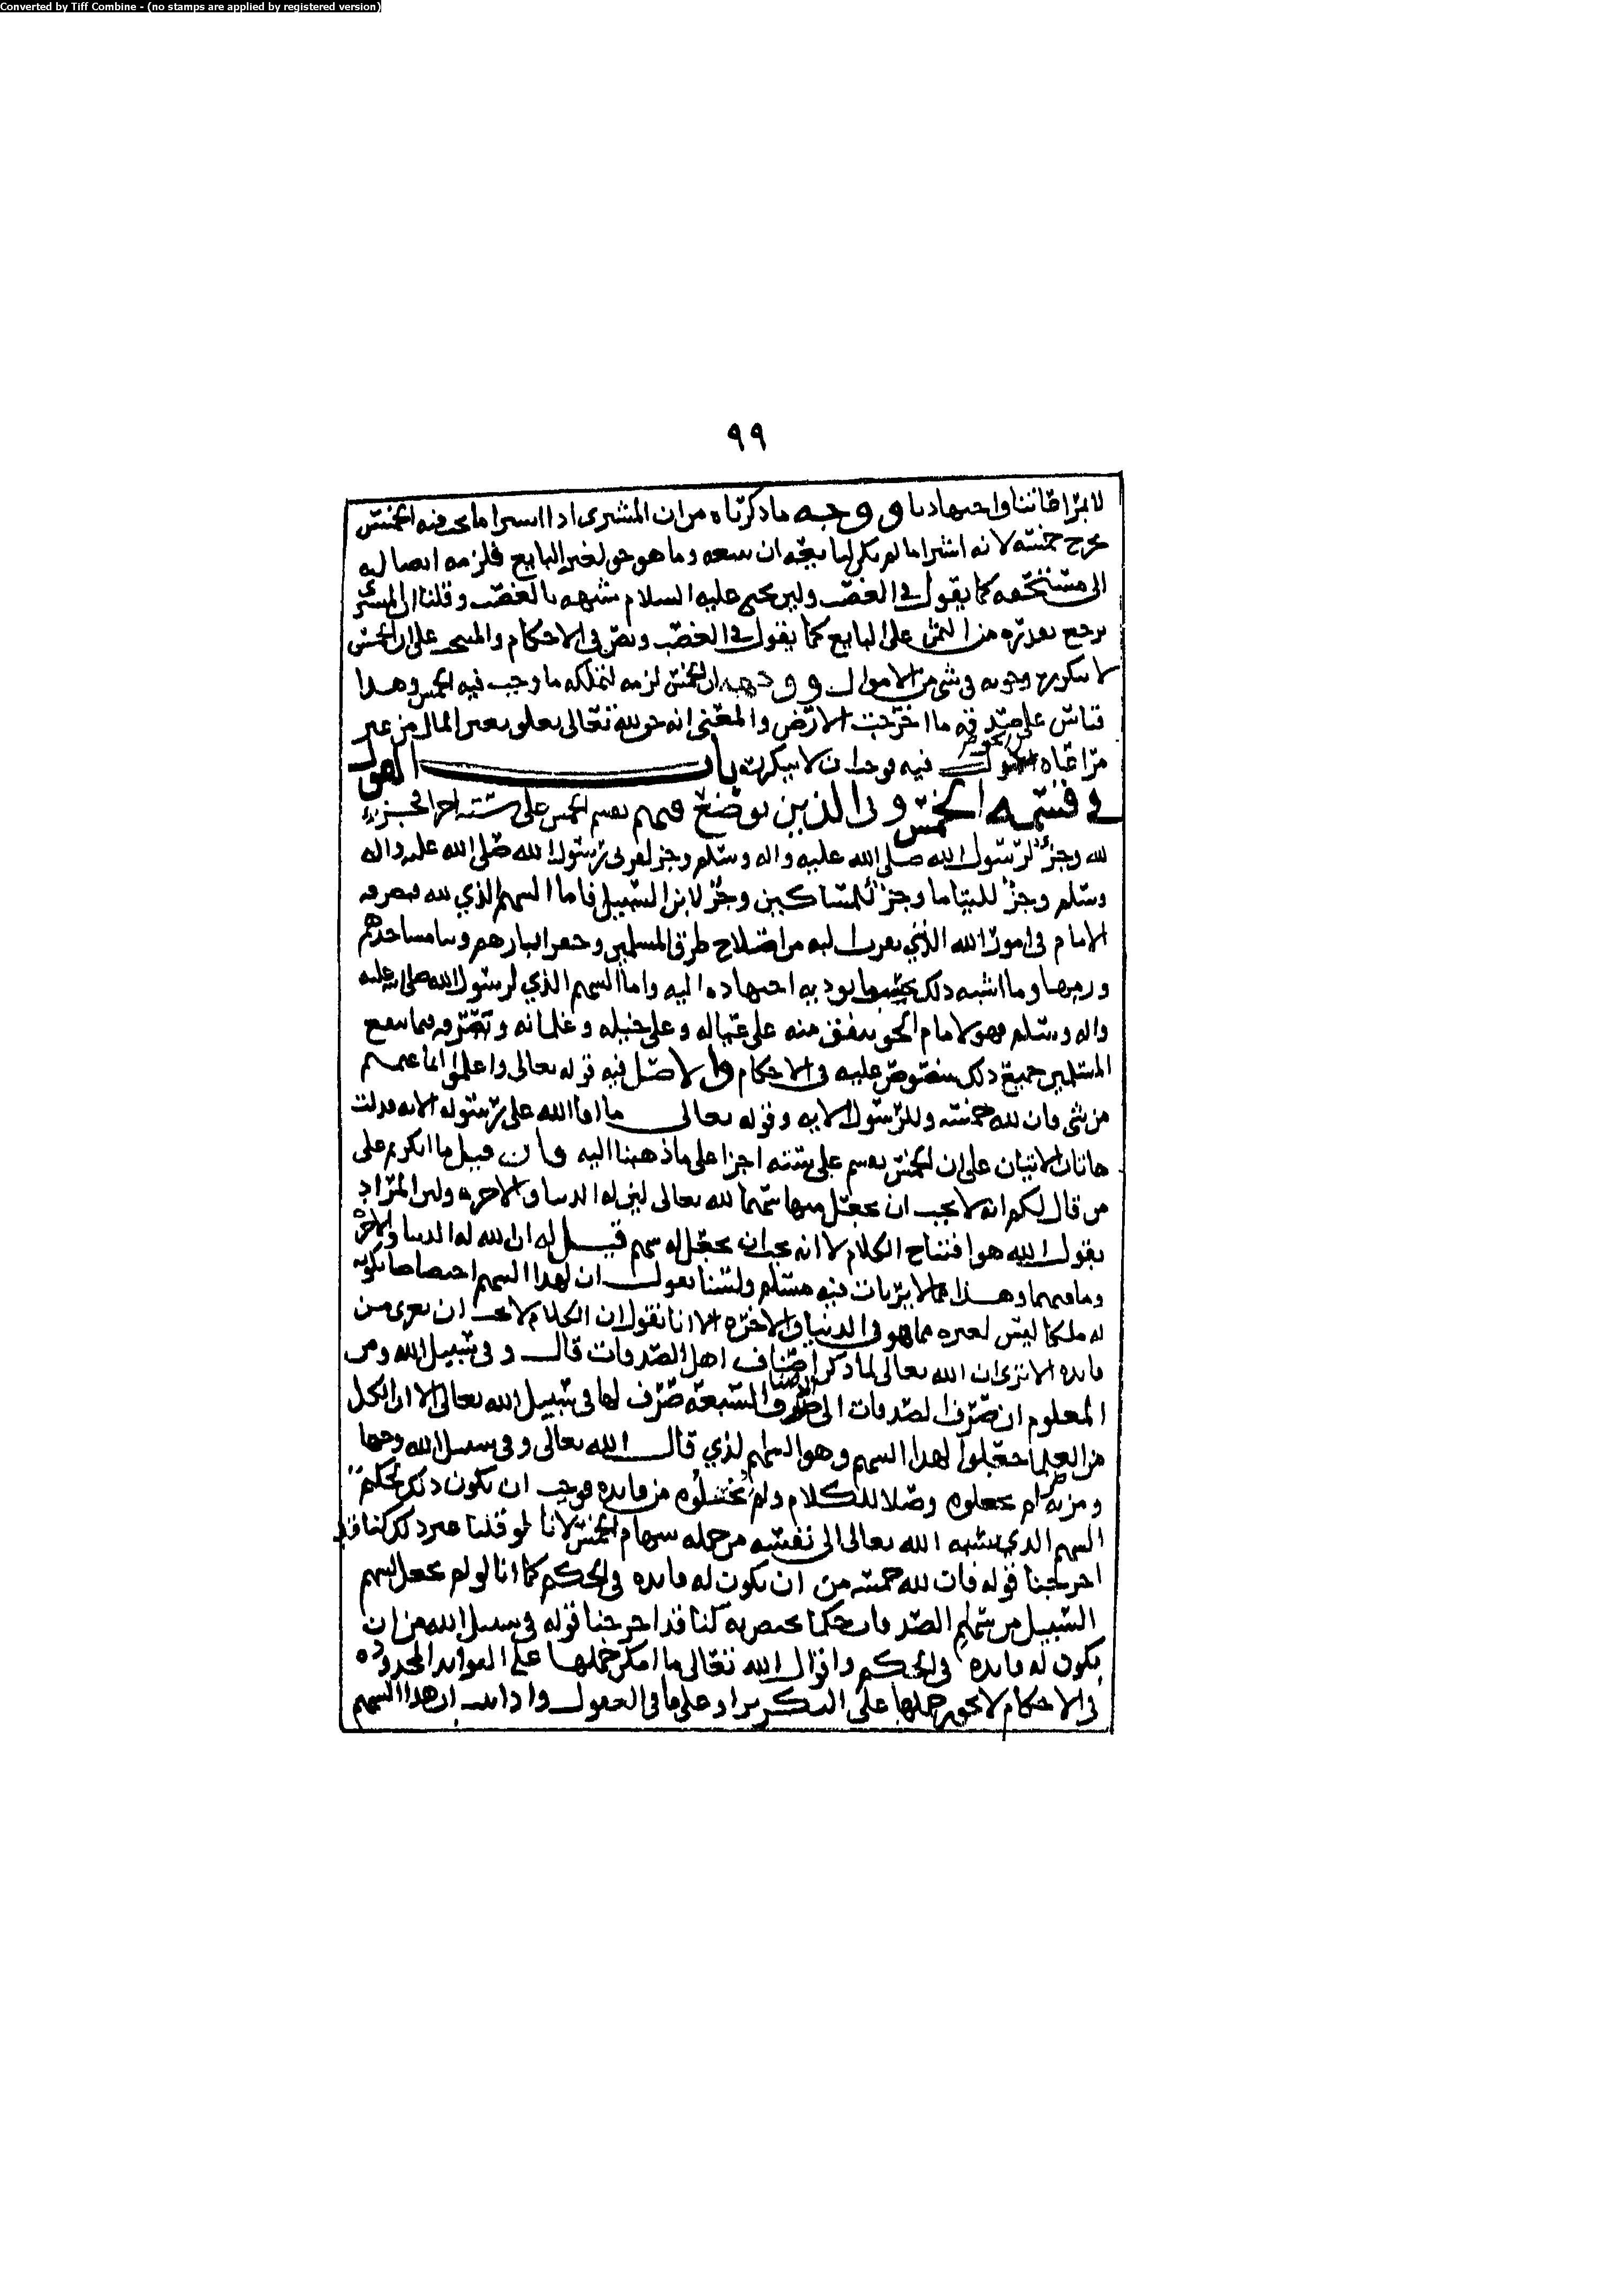 Converted by Tiff Combine - (no stamps are applied by registered version)
٩٩
ووجه ما ذكرناه من ان المشتري اذا اشترا ما يجب فيه الخمس
يخرج خمسه لانه اشترا ما لم يكن للبايع ان يبيعه وما هو حق لغير البايع فلزمه ايصاله
الى مستحقه كما يقول في الغصب وليحيى عليه السلام شبهه بالغصب وقلنا ان المشتري
يرجع بقدره من الثمن على البايع كما يقول في الغصب ونص في الاحكام والمنتخب على ان الخمس
لا يتكرر وجوبه في شي من الاموال ووجهه ان الخمس لزمه لتملكه ما وجب فيه الخمس وهذا
قياس على صدقه ما اخرجت الارض والمعنى انه حق لله تعالى يتعلق بعين المال من غير
مراعاه الحول فيه فوجب ان لا يتكرر باب القول
في قسمه الخمس وفي الذين يوضع فيهم يقسم الخمس على سته اجزا فجزء
لله وجزء لرسول الله صلى الله عليه واله وسلم وجز لقربى رسول الله صلى الله عليه واله
وسلم وجزء لليتاما وجزء للمساكين وجزء لابن السبيل فاما السهم الذي لله فيصرفه
الامام في امور الله الذي يقرب اليه من اصلاح طرق المسلمين وحفر ابيارهم وبنا مساجدهم
ورمها وما اشبه ذلك بحسب ما يوديه اجتهاده اليه واما السهم الذي لرسول الله صلى الله عليه
واله وسلم فهو لامام الحق ينفق منه على عياله وعلى خيله وغلمانه ويصرفه فيما ينفع
المسلمين جميع ذلك منصوص عليه في الاحكام والاصل فيه قوله تعالى واعلموا انما غنمتم
من شي فان لله خمسه وللرسول الايه وقوله تعالى ما افا الله على رسوله الايه فدلت
هاتان الايتان على ان الخمس يقسم على سته اجزا على ما ذهبنا اليه فان قيل ما انكرتم على
من قال لكم انه لا يجب ان يجعل منها سهما لله تعالى لان له الدنيا والاخره وان المراد
بقول الله هو افتتاح الكلام لا انه يجب ان يجعل له سهم قيل له ان لله له الدنيا والاخره
وما فيهما وهذا مما لا يرتاب فيه مسلم ولسنا نقول ان لهذا السهم اختصاصا بكونه
له ملكا ليس لغيره مما هو في الدنيا والاخره الا انا نقول ان الكلام لا يجب ان يعرى من
فايده الا ترى ان الله تعالى لما ذكر اصناف اهل الصدقات قال وفي سبيل الله ومن
المعلوم ان صرف الصدقات الى الاصناف السبعة صرف لها في سبيل الله تعالى الا ان الكل
من العلما جعلوا لهذا السهم وهو السهم الذي قال الله تعالى وفي سبيل الله وجها
ومزيه ولم يجعلوه وصلا للكلام ولم يخلوه من فايده فوجب ان يكون ذلك حكم
السهم الذي نسبه الله تعالى الى نفسه من جمله سهام الخمس لانا لو قلنا غير ذلك كنا قد
اخرجنا قوله فان لله خمسه من ان يكون له فايده في الحكم كما انا لو لم نجعل لسهم
السبيل من سهام الصدقات حكما يختص به كنا قد اخرجنا قوله في سبيل الله من ان
يكون له فايده في الحكم واقوال الله تعالى ما امكن حملها على الفوايد المحدوده
في الاحكام لا يجوز حملها على التكرير او على ما في العقول واذا ثبت ان هذا السهم